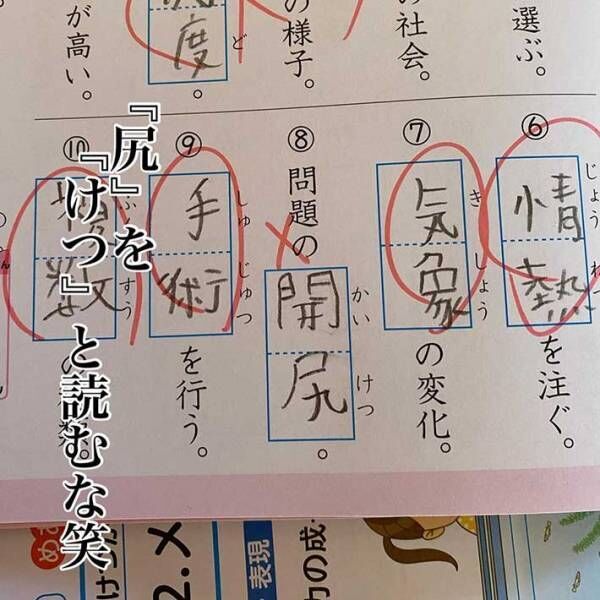 選ぶ。
の社会。
の様子。
度
ど
。
が高い。
⑥情熱を注ぐ。
じょうねつ
⑦気象の変化。
きしょう
⑧問題の開尻。
かいけつ
⑨手術を行う。
しゅじゅつ
⑩
数
すう
『尻』を
『けつ』と読むな笑
表現
力の成